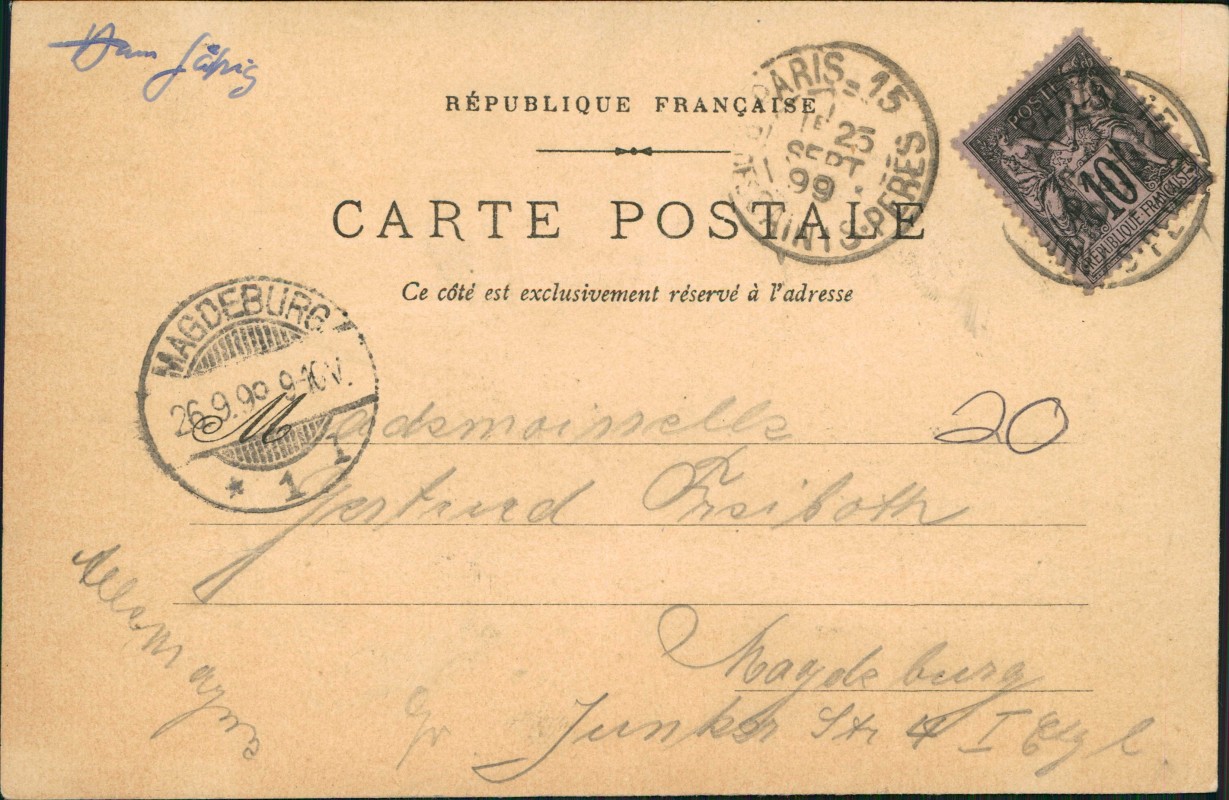 RÉPUBLIQUE FRANÇAISE
CARTE POSTALE
Ce côté est exclusivement réservé à l'adresse
PARIS-15
25
SEPT
99
DES SAINTS-PÈRES
POSTE
10
REPUBLIQUE FRANÇAISE
MAGDEBURG
26.9.99 9-10V.
* 1
20
Mademoisselle
Gertrud Freiboth
Magdeburg
Gr Junker Str 4 I
Allemagne